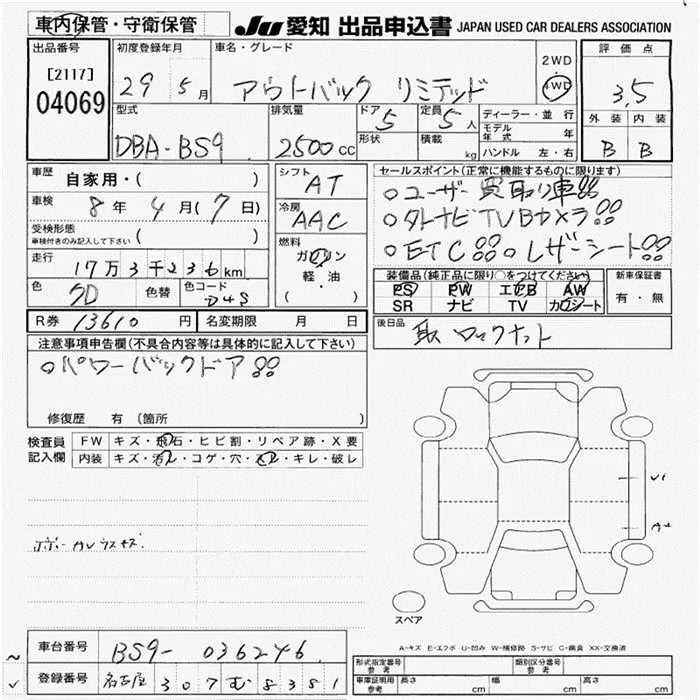 車内保管・守衛保管
JU 愛知 出品申込書 JAPAN USED CAR DEALERS ASSOCIATION
出品番号
[2117]
04069
初度登録年月
29 5月
車名・グレード
アウトバック リミテッド
2WD
4WD
評価点
3.5
外装 内装
B B
型式
DBA-BS9
排気量
2500cc
ドア 5
形状
定員 5人
積載 kg
ディーラー・並行
モデル年式 年
ハンドル 左・右
車歴 自家用・( )
車検 8年 4月(7日)
受検形態
車検付きのみ記入して下さい ( )
走行 17万3千236km
色 クロ 色替 色コード D4S
シフト AT
冷房 AAC
燃料 ガソリン
軽・油
( )
セールスポイント(正常に機能するものに限ります)
○ユーザー買取り車!!
○外ナビTVBカメラ!!
○ETC!! ○レザーシート!!
装備品(純正品に限り○をつけてください)
PS PW エアB AW
SR ナビ TV カワシート
新車保証書
有・無
R券 13610円 名変期限 月 日
後日品 取 ロックナット
注意事項申告欄(不具合内容等は具体的に記入して下さい)
○パワーバックドア!!
修復歴 有〔箇所 〕
検査員記入欄
FW キズ・飛石・ヒビ割・リペア跡・X要
内装 キズ・汚レ・コゲ・穴・スレ・キレ・破レ
スペア
A-キズ E-エクボ U-凹み W-補修跡 S-サビ C-腐食 XX-交換済
車台番号 BS9-036246
登録番号 名古屋 307 む 8381
形式指定番号 参考
類別区分番号 参考
車庫証明用 参考 長さ cm 幅 cm 高さ cm